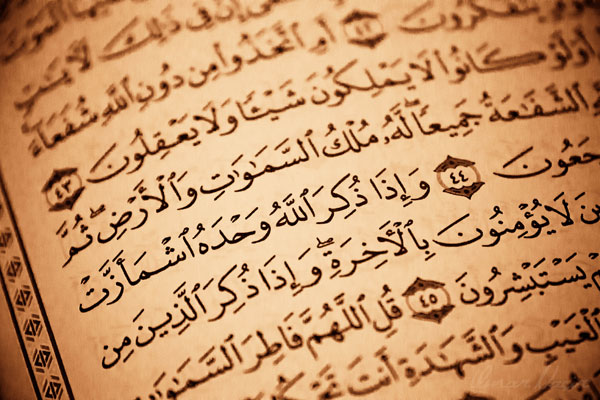 إِنَّ فِي ذَٰلِكَ لَآيَٰتٍ
يَتَفَكَّرُونَ ٤٢ أَمِ ٱتَّخَذُوا۟ مِن دُونِ ٱللَّهِ شُفَعَآءَ
أَوَلَوْ كَانُوا۟ لَا يَمْلِكُونَ شَيْـًٔا وَلَا يَعْقِلُونَ ٤٣
ٱلشَّفَٰعَةُ جَمِيعًا ۖ لَّهُۥ مُلْكُ ٱلسَّمَٰوَٰتِ وَٱلْأَرْضِ ۖ ثُمَّ
جَعُونَ ٤٤ وَإِذَا ذُكِرَ ٱللَّهُ وَحْدَهُ ٱشْمَأَزَّتْ
ينَ لَا يُؤْمِنُونَ بِٱلْـَٔاخِرَةِ ۖ وَإِذَا ذُكِرَ ٱلَّذِينَ مِن
يَسْتَبْشِرُونَ ٤٥ قُلِ ٱللَّهُمَّ فَاطِرَ ٱلسَّمَٰوَٰتِ
ٱلْغَيْبِ وَٱلشَّهَٰدَةِ أَنتَ تَحْكُمُ